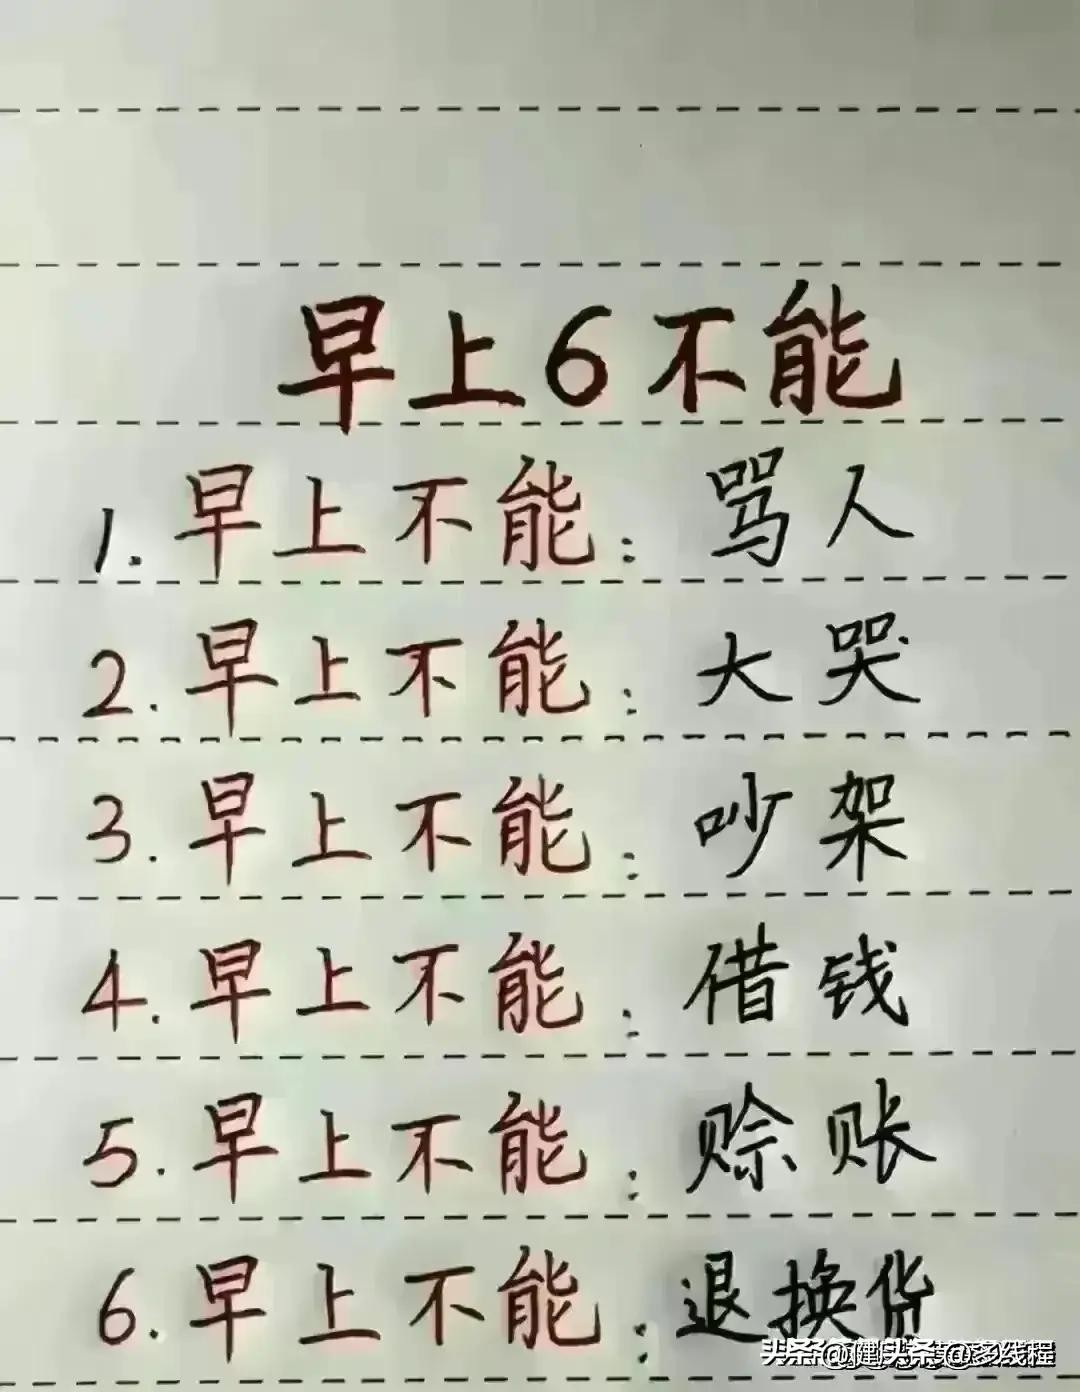 早上6不能
1.早上不能:骂人
2.早上不能:大哭
3.早上不能:吵架
4.早上不能:借钱
5.早上不能:赊账
6.早上不能:退换货
头条 @多线程